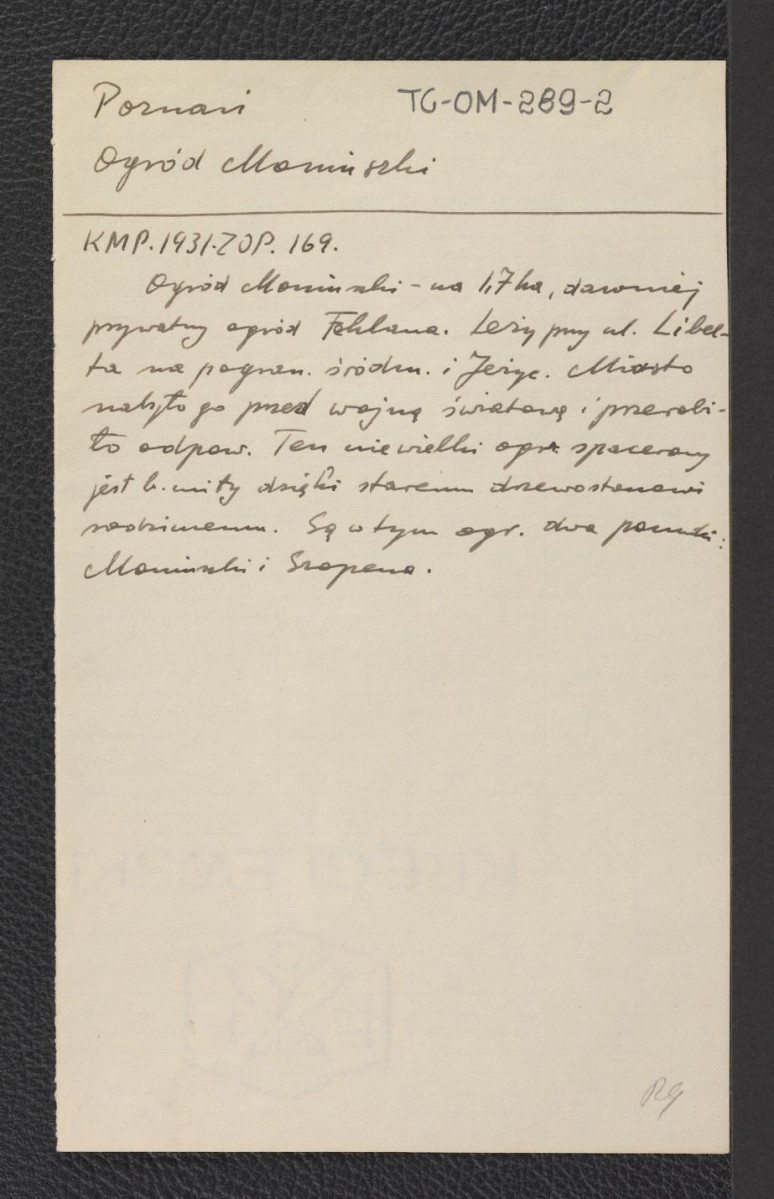 Poznań TG-OM-289-2
Ogród Moniuszki
KMP.1931.ZOP. 169.
Ogród Moniuszki - na 1,7 ha, dawniej
prywatny ogród Fehlana. Leży przy ul. Libel-
ta na pogran. śródm. i Jeżyc. Miasto
nabyło go przed wojną światową i przerobi-
ło odpow. Ten niewielki ogr. spacerowy
jest b. miły dzięki staremu drzewostanowi
rodzimemu. Są w tym ogr. dwa pomniki:
Moniuszki i Szopena.
Rg